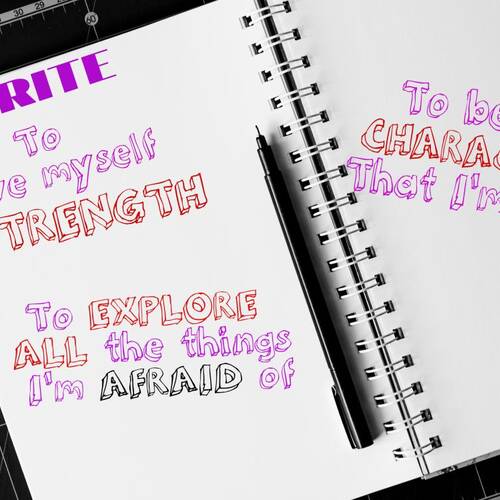 29 30
60
RITE
To
ve myself
TRENGTH
To EXPLORE
ALL the things
I'm AFRAID of
To be
CHARAC
That I'm